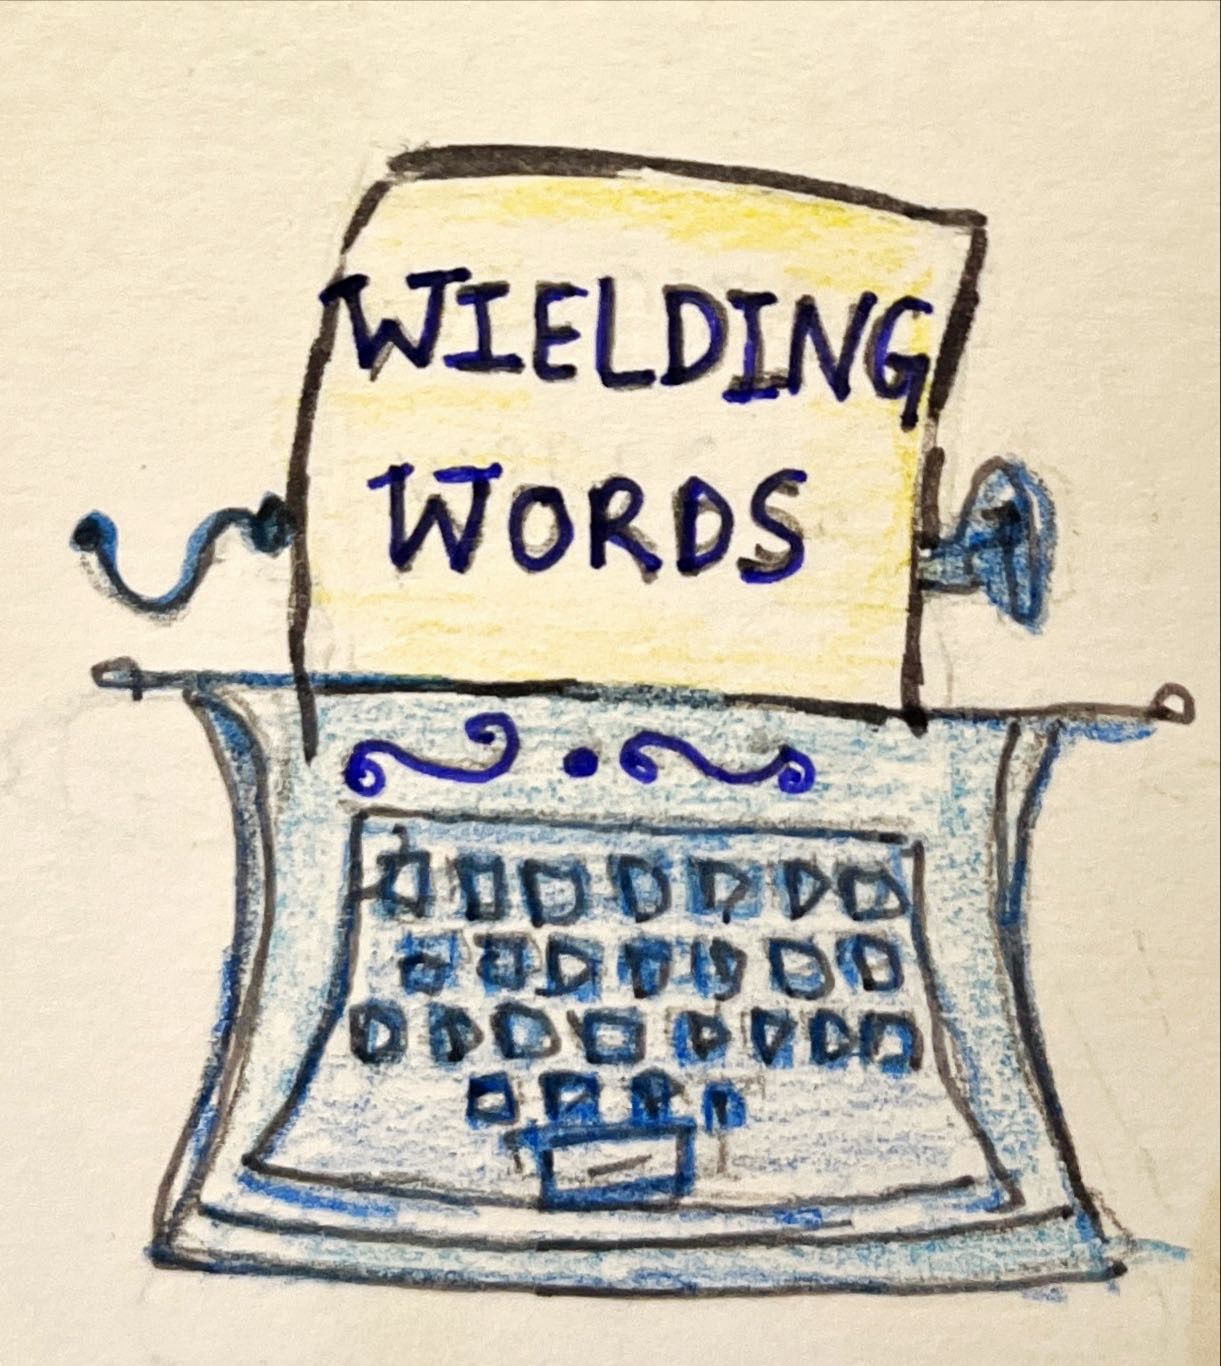 WIELDING
WORDS